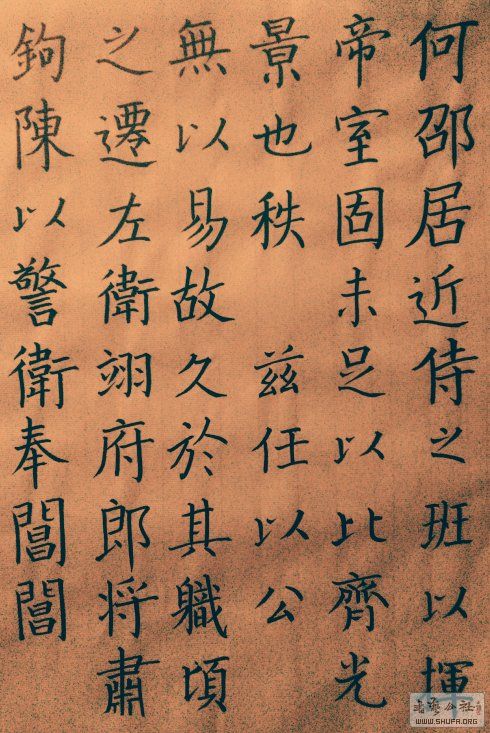 何邵居近侍之班以揮
帝室固未足以比齊光
景也秩茲任以公
無以易故久於其職頃
之遷左衛翊府郎将肅
鉤陳以警衛奉閶閶
書藝公社
WWW.SHUFA.ORG